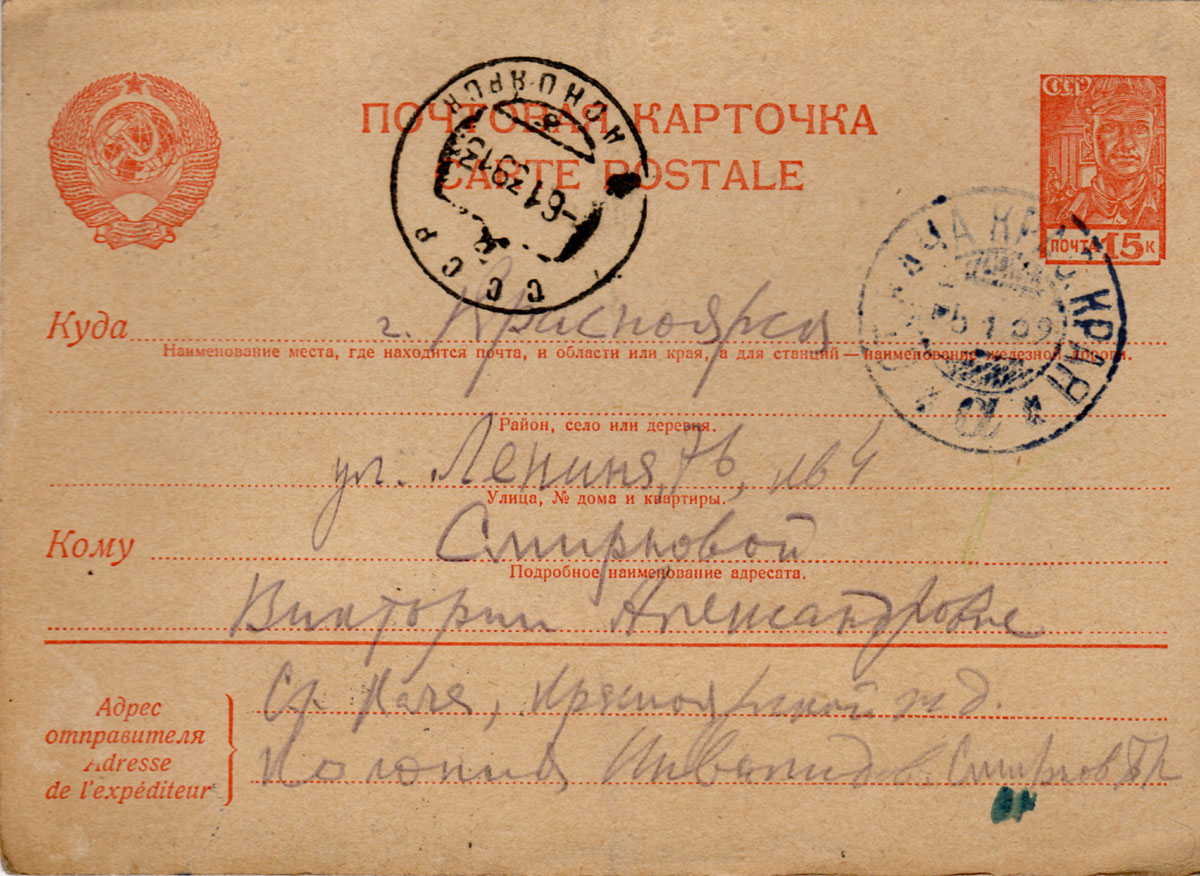 СССР
ПОЧТОВАЯ КАРТОЧКА
CARTE POSTALE
ПОЧТА 15 К
КРАСНОЯРСК
-6 1 39 13
СССР
КАЧА КРАС. КРАЯ
Куда г. Красноярск
Наименование места, где находится почта, и области или края, а для станций — наименование железной дороги.
Район, село или деревня.
ул. Ленина, 76, кв 4
Улица, № дома и квартиры.
Кому Смирновой
Подробное наименование адресата.
Виктории Александровне
Адрес
отправителя
Adresse
de l'expéditeur
Ст. Кача, Красноярской ж д.
Колония Инвалидов. Смирнов